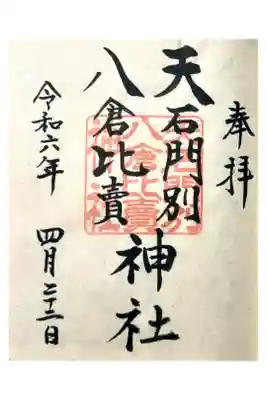 奉拝
天石門別
八倉比賣
神社
令和六年 四月二十二日